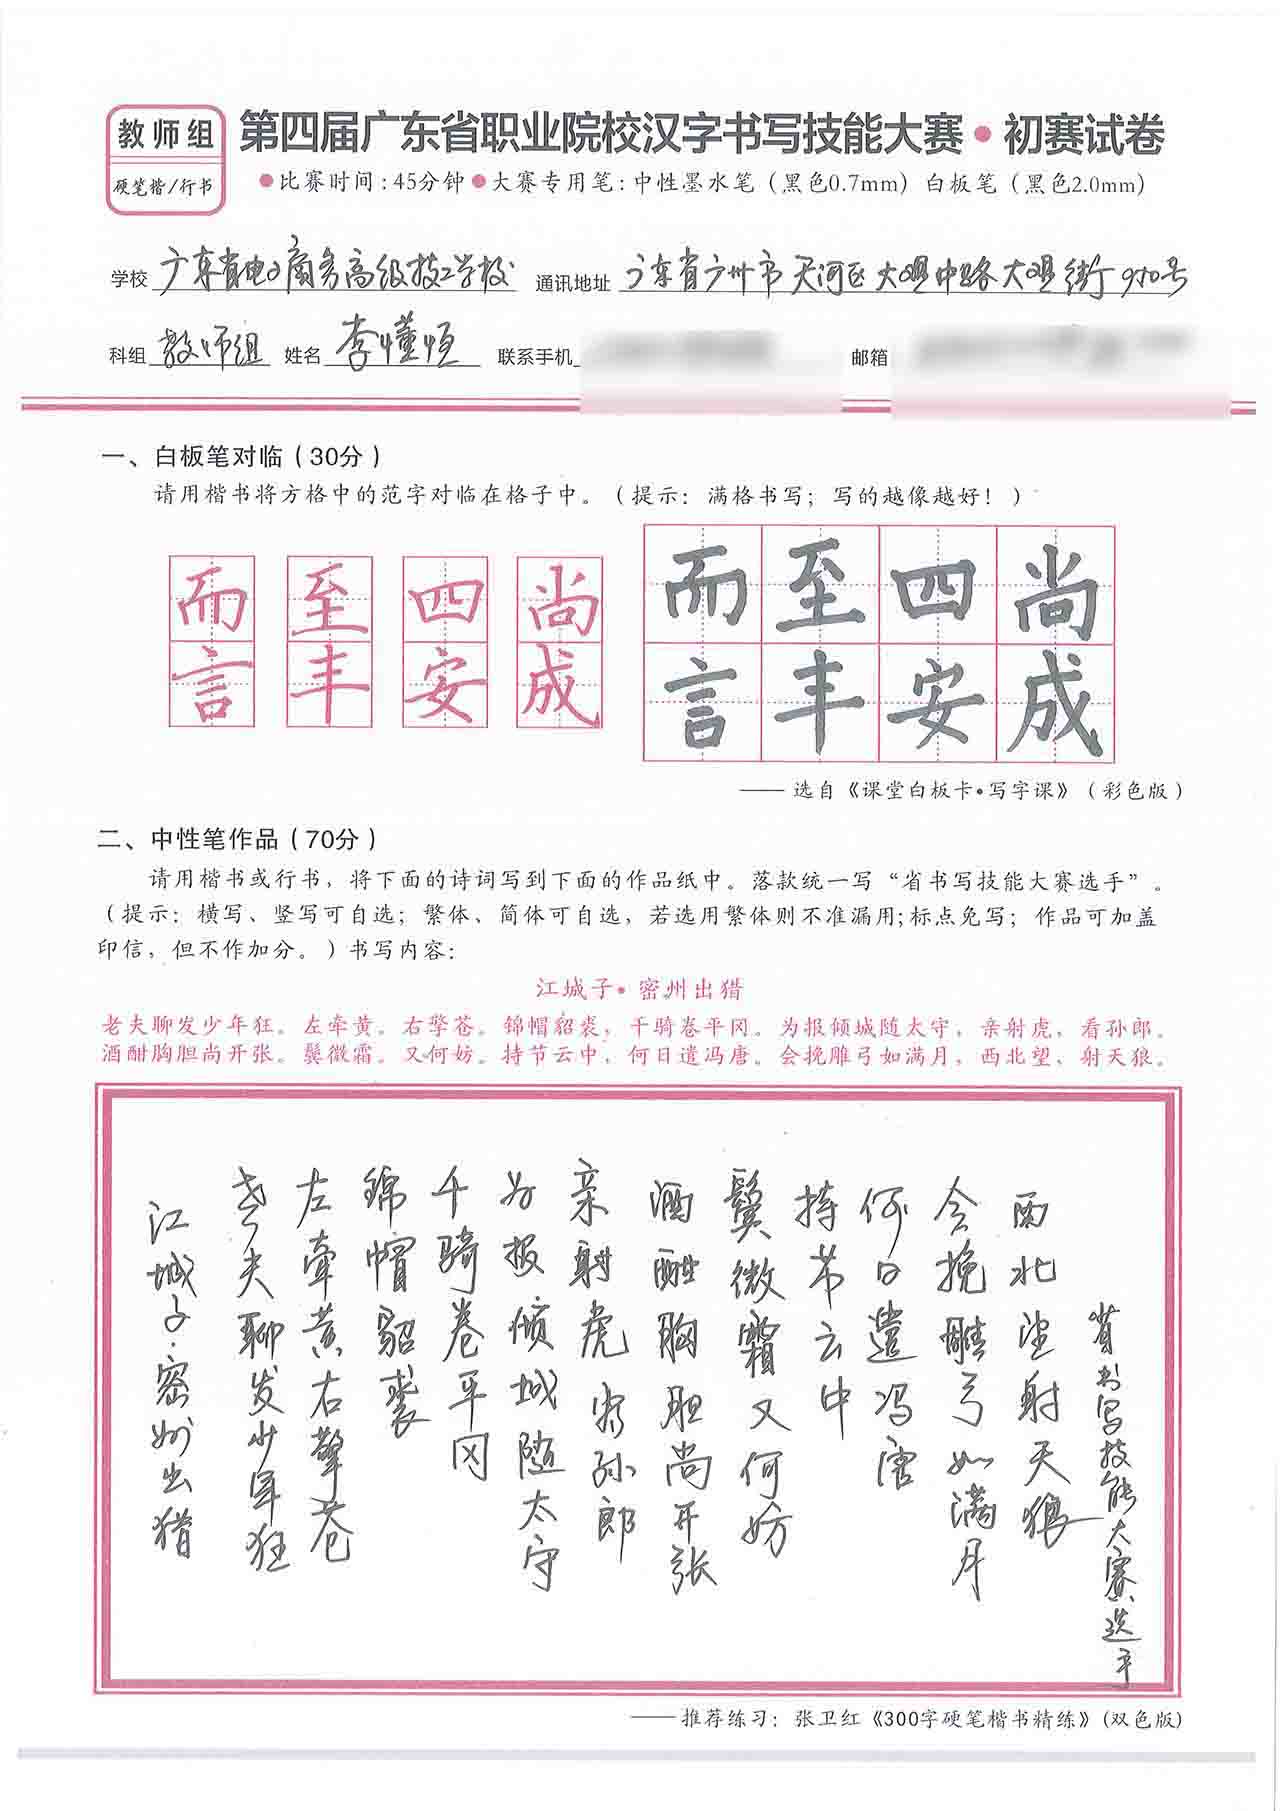 教师组
硬笔楷/行书
第四届广东省职业院校汉字书写技能大赛·初赛试卷
●比赛时间:45分钟●大赛专用笔:中性墨水笔(黑色0.7mm)白板笔(黑色2.0mm)
学校 广东省电子商务高级技工学校 通讯地址 广东省广州市天河区大观中路大观街950号
科组 教师组 姓名 李懂恒 联系手机 邮箱
一、白板笔对临(30分)
请用楷书将方格中的范字对临在格子中。(提示:满格书写;写的越像越好!)
而 至 四 尚 而 至 四 尚
言 丰 安 成 言 丰 安 成
——选自《课堂白板卡·写字课》(彩色版)
二、中性笔作品(70分)
请用楷书或行书,将下面的诗词写到下面的作品纸中。落款统一写“省书写技能大赛选手”。
(提示:横写、竖写可自选;繁体、简体可自选,若选用繁体则不准漏用;标点免写;作品可加盖
印信,但不作加分。)书写内容:
江城子·密州出猎
老夫聊发少年狂。左牵黄。右擎苍。锦帽貂裘,千骑卷平冈。为报倾城随太守,亲射虎,看孙郎。
酒酣胸胆尚开张。鬓微霜。又何妨。持节云中,何日遣冯唐。会挽雕弓如满月,西北望、射天狼。
江城子·密州出猎
老夫聊发少年狂
左牵黄右擎苍
锦帽貂裘
千骑卷平冈
为报倾城随太守
亲射虎看孙郎
酒酣胸胆尚开张
鬓微霜又何妨
持节云中
何日遣冯唐
会挽雕弓如满月
西北望射天狼
省书写技能大赛选手
——推荐练习:张卫红《300字硬笔楷书精练》(双色版)